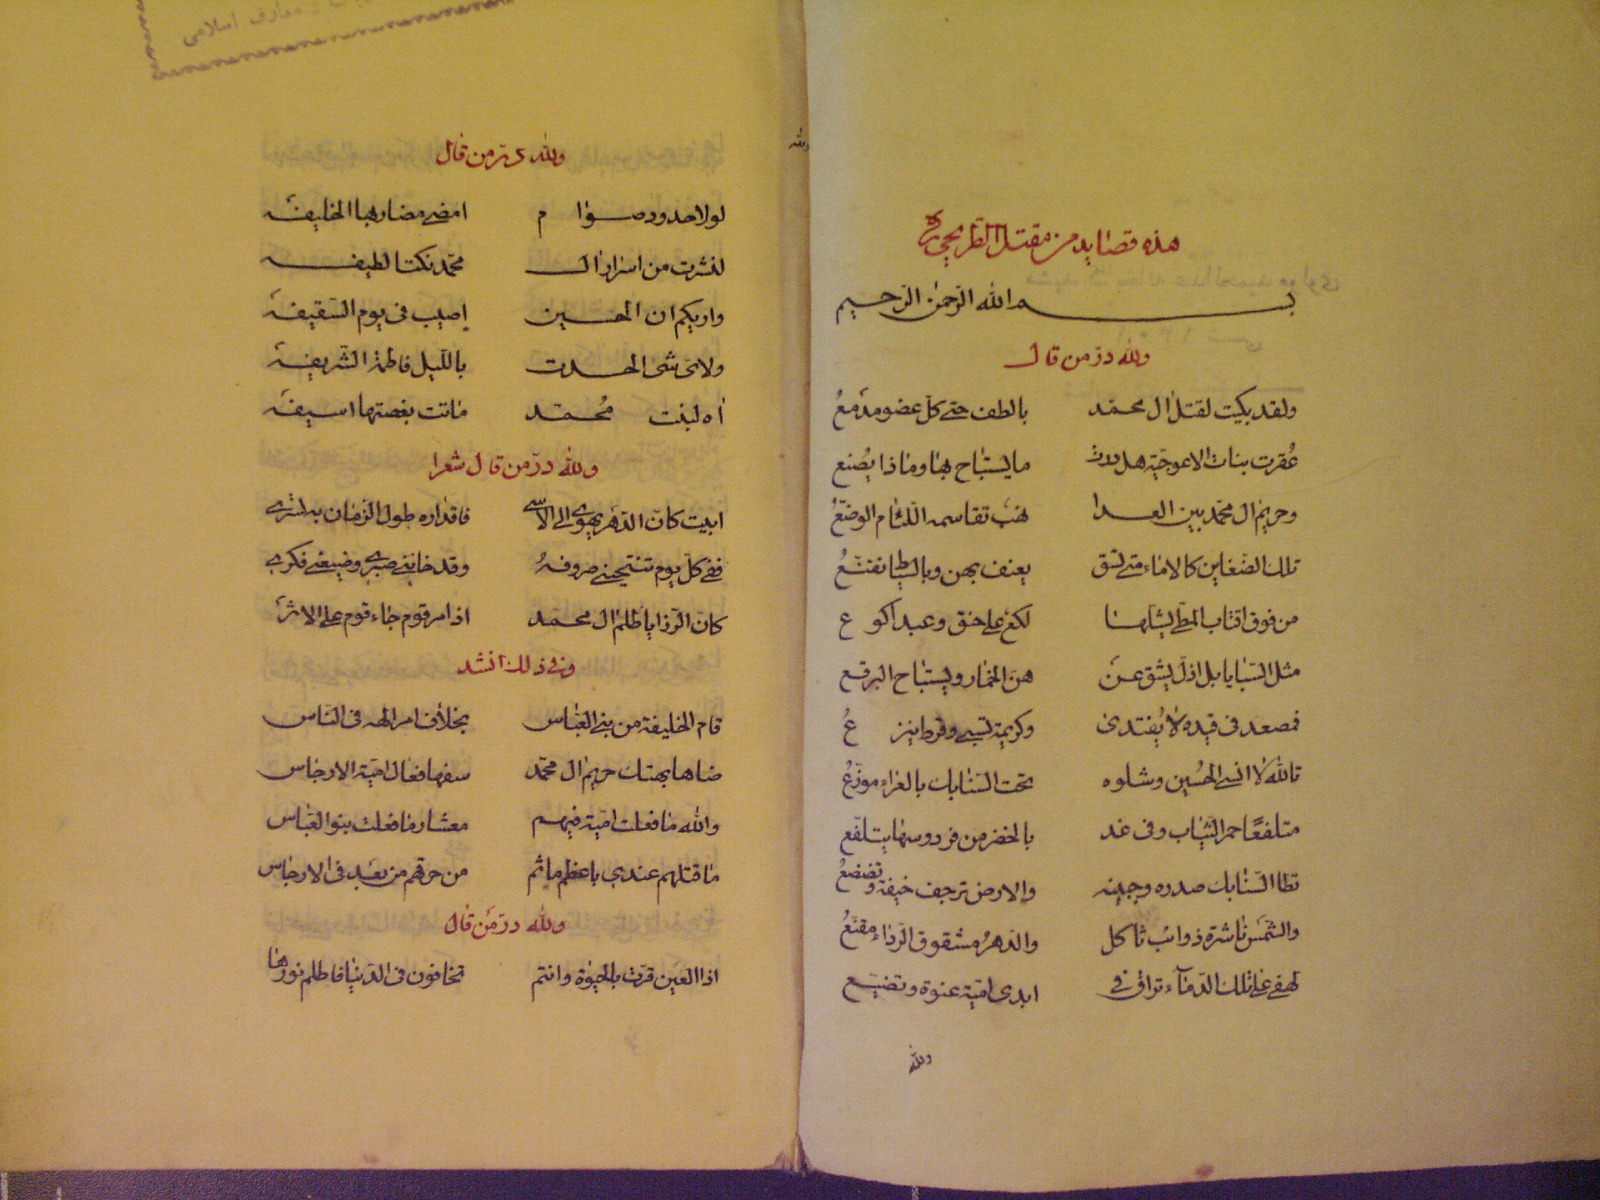 هذه قصايد من مقتل الطريحي ره
بسم الله الرحمن الرحيم
ولله در من قال
ولقد بكيت لقتل ال محمد بالطف حتى كل عضو مدمع
عقرت بنات الاعوجية هل درت ما يستباح بها وماذا يصنع
وحريم ال محمد بين العدا نهب تقاسمه اللئام الوضع
تلك الضغاين كالاماء متى تسق يعنف بهن وبالسياط تقنع
من فوق اقتاب المطي يشلهنا لكع على حنق وعبد اكوع
مثل السبايا بل اذل يشق عن هن الخمار ويستباح البرقع
فمصعد في قيده لا يفتدى وكريمة تسبى وقرط ينزع
تالله لا انسى الحسين وشلوه تحت السنابك بالعراء موزع
متلفعا حمر الثياب وفي غد بالخضر من فردوسها يتلفع
تطا السنابك صدره وجبينه والارض ترجف خيفة وتضضع
والشمس ناشرة ذوائب ثاكل والدهر مشقوق الرداء مقنع
لهفي على تلك الدماء تراق في ايدى امية عنوة وتضيع
ولله
ولله در من قال
لولا حدود صوام امضى مضاربها الخليفة
لنشرت من اسرار ال محمد نكتا لطيفه
واريكم ان الحسين اصيب في يوم السقيفة
ولاى شئ الحدت بالليل فاطمة الشريفة
اه لبنت محمد ماتت بغصتها اسيفة
ولله در من قال شعرا
ابيت كان الدهر يهوى الى الاسى فاقداره طول الزمان به تسرى
ففي كل يوم تنتحيني صروفه وقد خانني صبري وضيعني فكري
كان الرزايا ظلم ال محمد اذا مر قوم جاء قوم على الاثر
وفي ذلك انشد
قام الخليفة من بني العباس بخلاف امر الهه في الناس
ضاها بهتك حريم ال محمد سفها فعال امية الارجاس
والله ما فعلت امية فيهم معشار ما فعلت بنو العباس
ما قتلهم عندي باعظم ماثم من حرقهم من بعد في الارجاس
ولله در من قال
اذا العين قرت بالحيوة وانتم تخافون في الدنيا فاظلم نورها